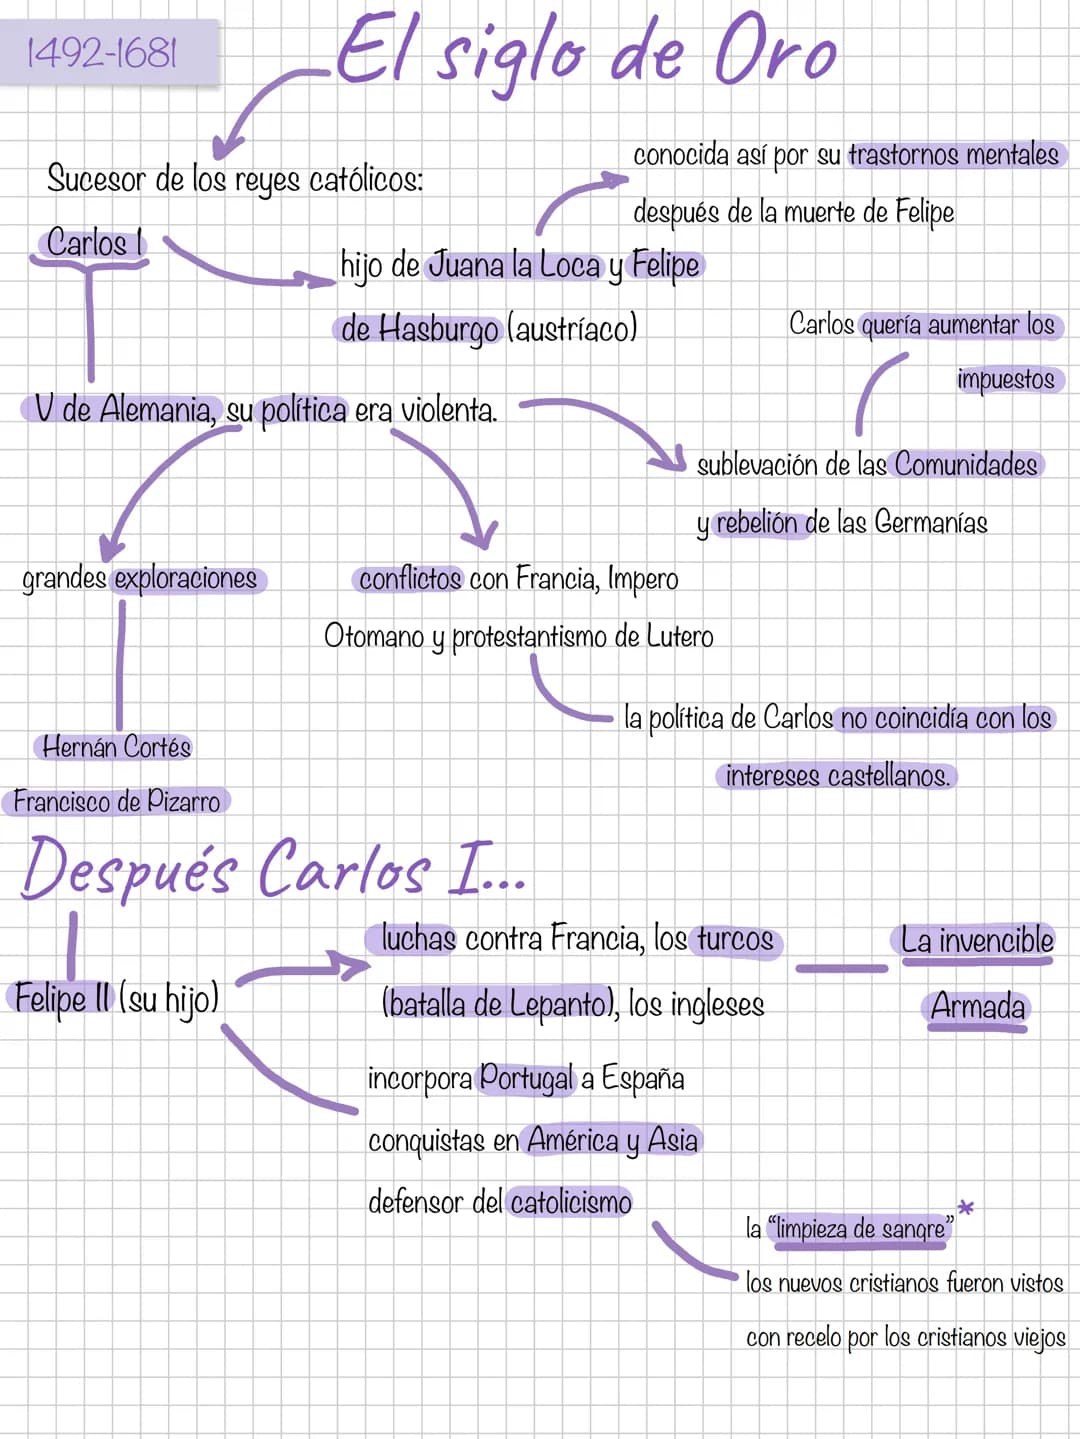 1492-1681
El siglo de Oro
Sucesor de los reyes católicos:
Carlos I
conocida así por su trastornos mentales
después de la muerte de Felipe
hijo de Juana la Loca y Felipe
de Hasburgo (austríaco)
Carlos quería aumentar los
impuestos
V de Alemania, su política era violenta.
sublevación de las Comunidades
y rebelión de las Germanías
grandes exploraciones
conflictos con Francia, Impero
Otomano y protestantismo de Lutero
la política de Carlos no coincidía con los
intereses castellanos.
Hernán Cortés
Francisco de Pizarro
Después Carlos I...
Felipe II (su hijo)
luchas contra Francia, los turcos
(batalla de Lepanto), los ingleses
La invencible
Armada
incorpora Portugal a España
conquistas en América y Asia
defensor del catolicismo
la “limpieza de sangre” *
los nuevos cristianos fueron vistos
con recelo por los cristianos viejos